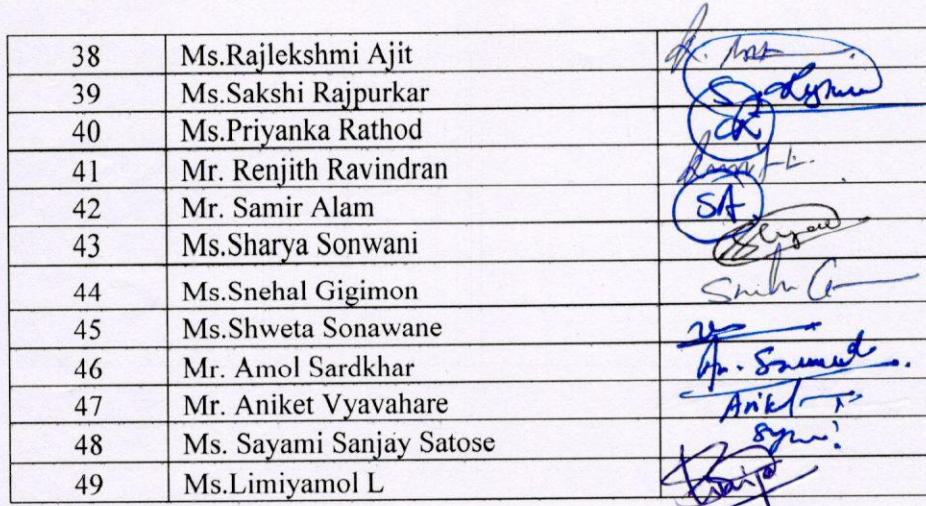 38 Ms.Rajlekshmi Ajit
39 Ms.Sakshi Rajpurkar
40 Ms.Priyanka Rathod
41 Mr. Renjith Ravindran
42 Mr. Samir Alam SA
43 Ms.Sharya Sonwani
44 Ms.Snehal Gigimon
45 Ms.Shweta Sonawane
46 Mr. Amol Sardkhar
47 Mr. Aniket Vyavahare
48 Ms. Sayami Sanjay Satose
49 Ms.Limiyamol L